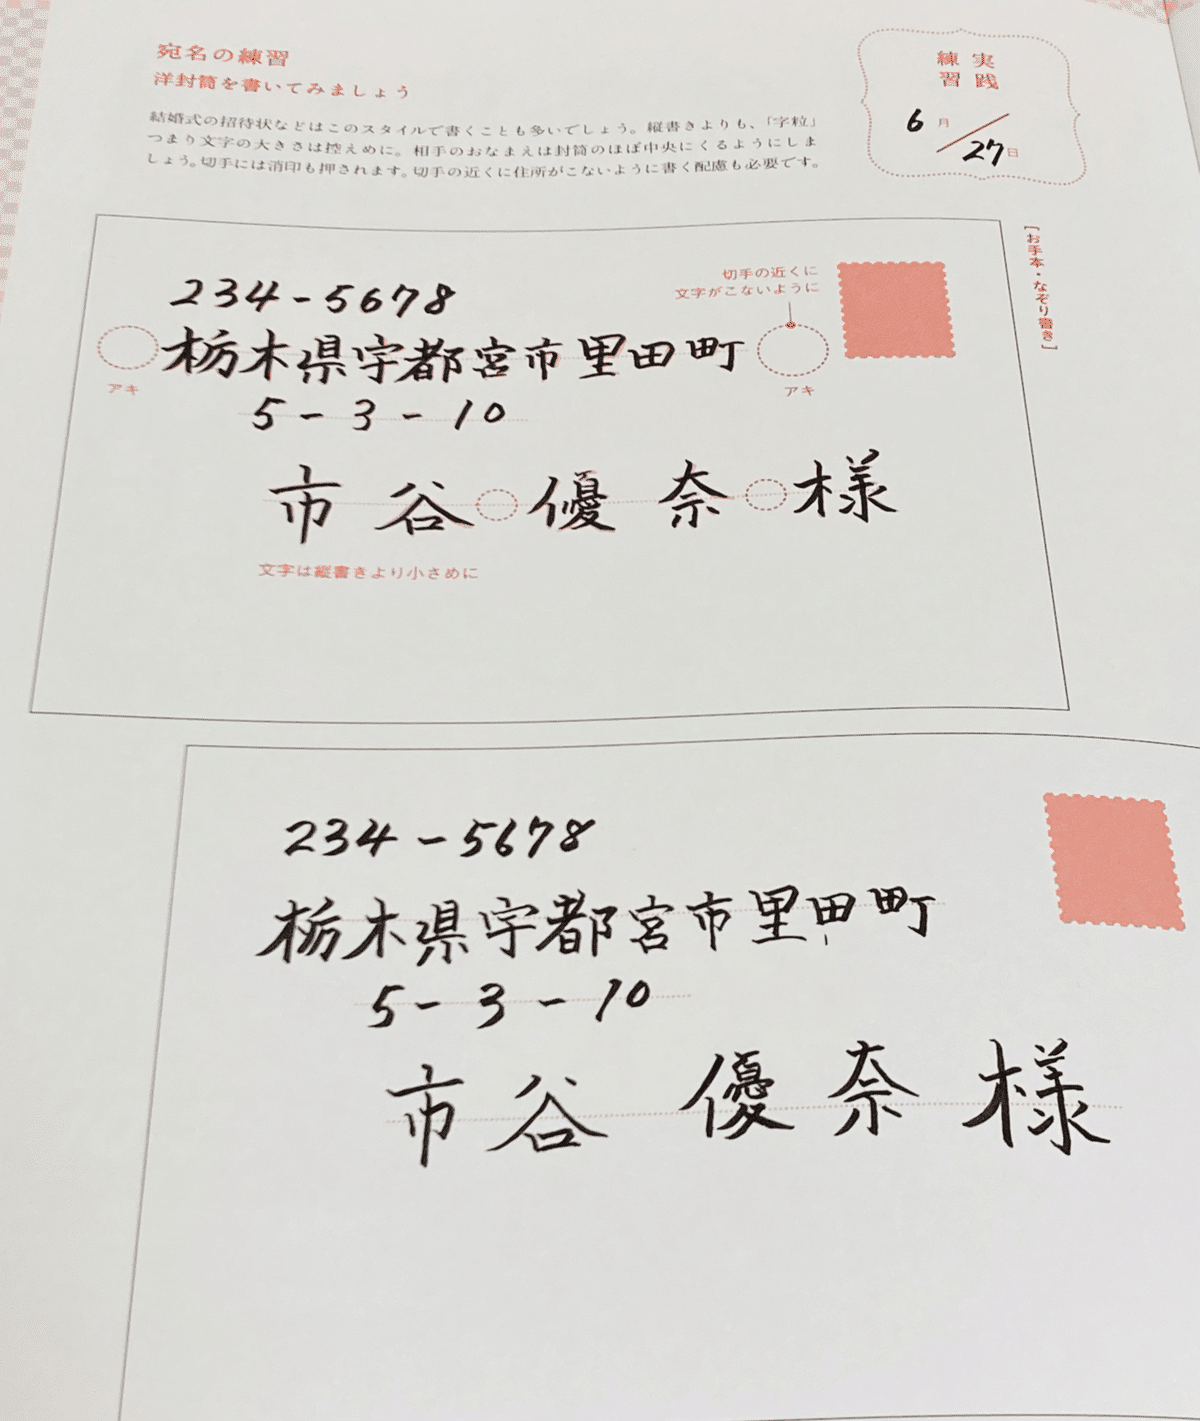 宛名の練習
洋封筒を書いてみましょう
結婚式の招待状などはこのスタイルで書くことも多いでしょう。縦書きよりも、「字粒」
つまり文字の大きさは控えめに。相手のおなまえは封筒のほぼ中央にくるようにしま
しょう。切手には消印も押されます。切手の近くに住所がこないように書く配慮も必要です。
実践
練習
6月/27日
[お手本・なぞり書き]
切手の近くに
文字がこないように
234-5678
栃木県宇都宮市里田町
アキ
アキ
5-3-10
市谷 優奈 様
文字は縦書きより小さめに
234-5678
栃木県宇都宮市里田町
5-3-10
市谷 優奈 様